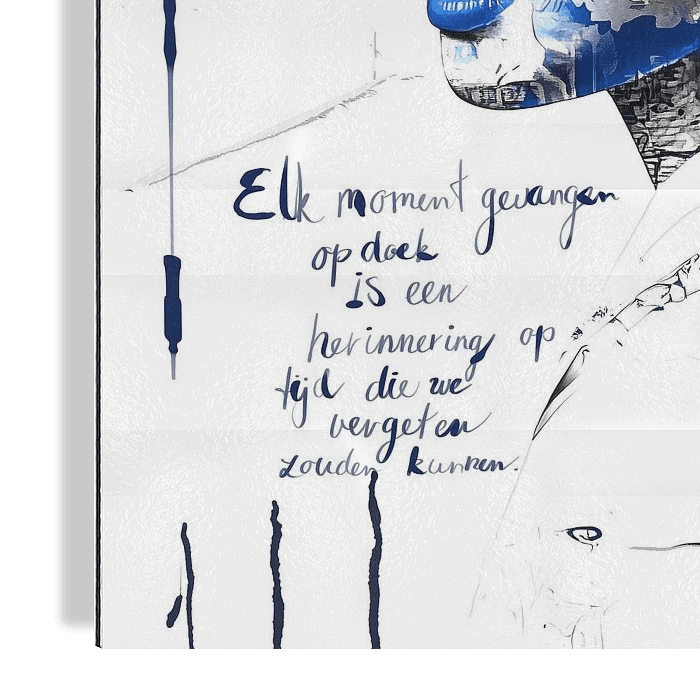 Elk moment gevangen
op doek
is een
herinnering op
tijd die we
vergeten
zouden kunnen.